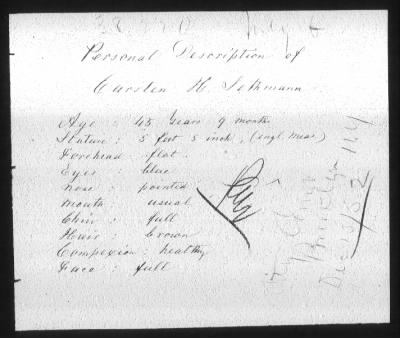 Personal Description of
Carsten H. Sethmann
Age : 45 Years 9 months
Stature : 5 feet 5 inch, (engl. meas)
Forehead : flat.
Eyes : blue
nose : pointed
mouth : usual
Chin : full
Hair : brown
Compexion : healthy
Face : full
Brooklyn N.Y.
Dec